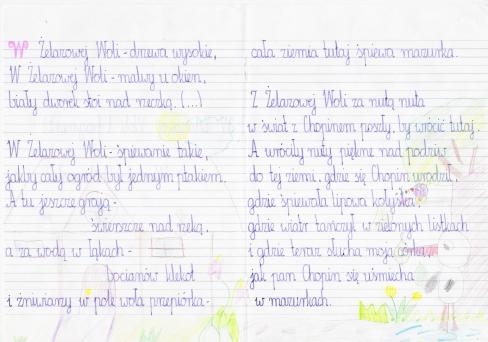 W Żelazowej Woli - drzewa wysokie,
W Żelazowej Woli - malwy u okien,
biały dworek stoi nad rzeczką. (...)
W Żelazowej Woli - śpiewanie takie,
jakby cały ogród był jednym ptakiem.
A tu jeszcze grają -
świerszcze nad rzeką,
a za wodą w łąkach -
bocianów klekot
i żniwiarzy w pole woła przepiórka -
cała ziemia tutaj śpiewa mazurka.
Z Żelazowej Woli za nutą nuta
w świat z Chopinem poszły, by wrócić tutaj.
A wróciły nuty piękne nad podziw
do tej ziemi, gdzie się Chopin urodził,
gdzie śpiewała lipowa kołyska,
gdzie wiatr tańczył w zielonych listkach
i gdzie teraz słucha moja córka,
jak pan Chopin się uśmiecha
w mazurkach.